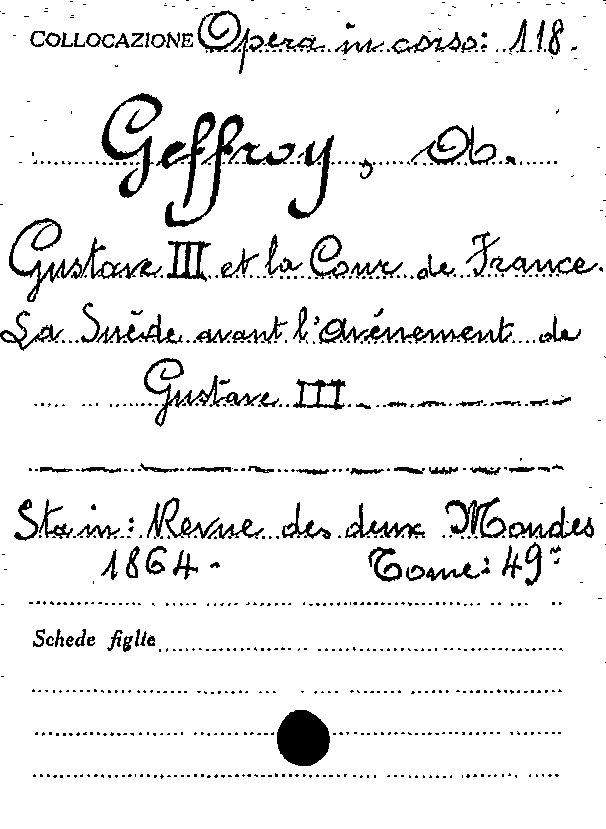 COLLOCAZIONE Opera in corso: 118.
Geffroy, A.
Gustave III et la Cour de France.
La Suède avant l'avénement de
Gustave III
Sta in: Revue des deux Mondes
1864. Tome: 49º
Schede figlie